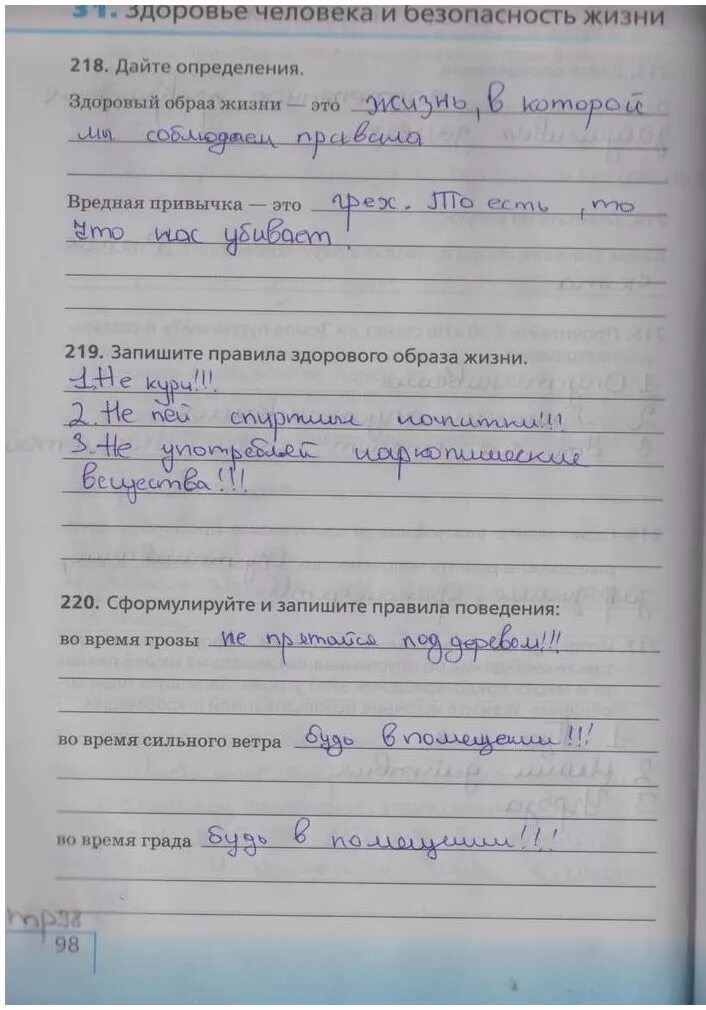 31. Здоровье человека и безопасность жизни
218. Дайте определения.
Здоровый образ жизни — это жизнь, в которой
мы соблюдаем правала
Вредная привычка — это грех. То есть, то
что нас убивает.
219. Запишите правила здорового образа жизни.
1. Не кури!!!
2. Не пей спиртные напитки!!!
3. Не употребляй наркотические
вещества!!!
220. Сформулируйте и запишите правила поведения:
во время грозы не прятайся под деревом!!!
во время сильного ветра будь в помещении!!!
во время града будь в помещении!!!
тр98
98